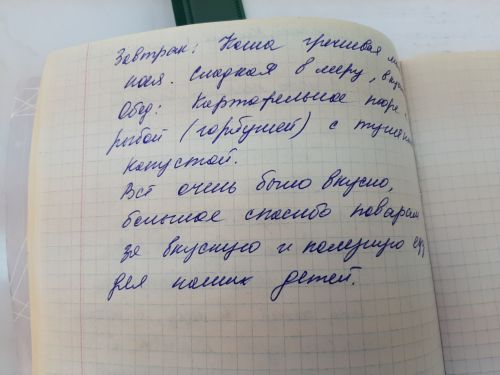 Завтрак: Каша гречневая мо
ная. Сладкая в меру, вкус
Обед: Картофельное пюре с
рыбой (горбушей) с тушено
капустой.
Всё очень было вкусно,
большое спасибо поварам
за вкусную и полезную еду
для наших детей.